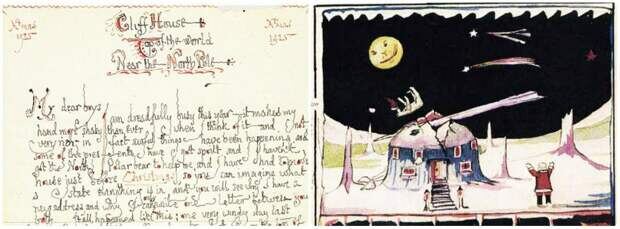 Xmas
1925
Cliff House
Top of the World
Near the North Pole
Xmas
1925
My dear boys
I am dreadfully busy this year – it makes my
hand more shaky than ever when I think of it – and not
very rich. In fact awful things have been happening and
some of the presents have got spoilt and I haven't
got the North Polar bear to help me and I have had to move
house just before Christmas, so you can imagine what
a state everything is in, and you will see why I have a
new address and why I can only write one letter between you
both. It all happened like this: one very windy day last